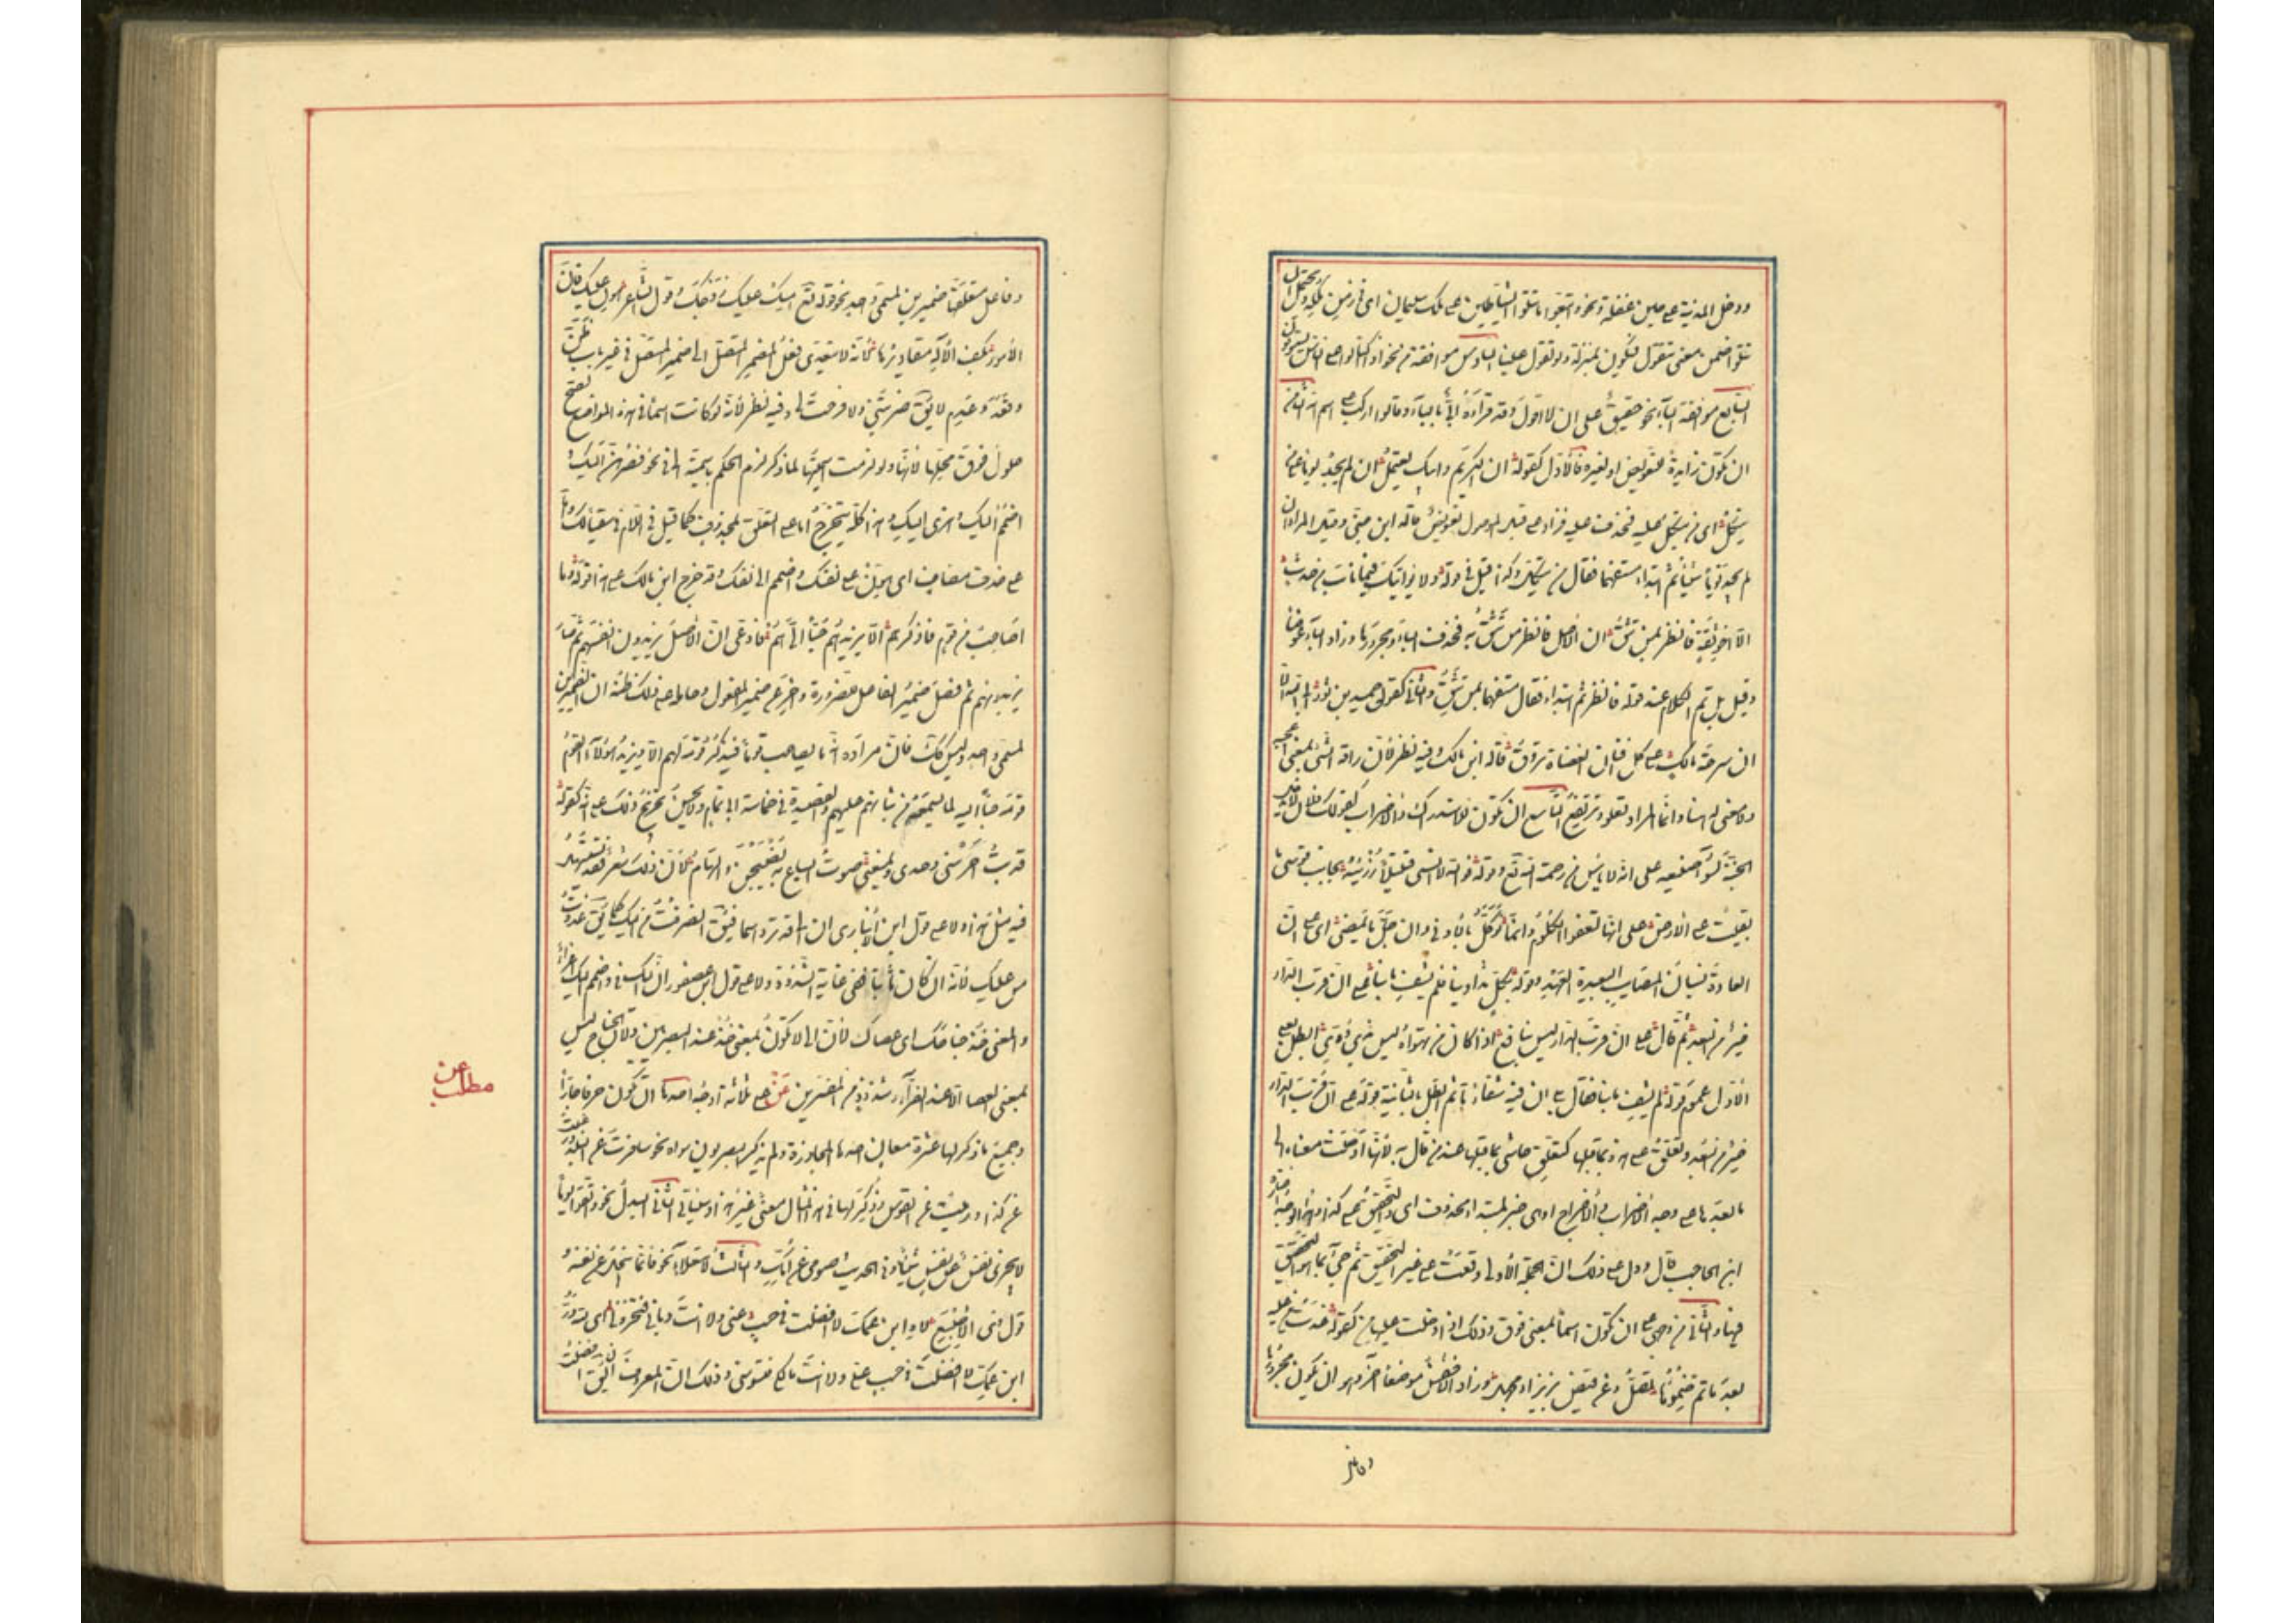 ودخل المدينة على حين غفلة ونحو واتبعوا ما تتلوا الشياطين على ملك سليمان اى فى زمن ملكه ويحتمل ان
تتلوا ضمن معنى تتقول فيكون بمنزلة ولو تقول علينا السادس موافقة من نحو اذا اكتالوا على الناس يستوفون
السابع موافقة الباء نحو حقيق على ان لا اقول وقد قرأ ابىّ بالباء وقالوا اركب على اسم الله الثامن
ان تكون زايدة للتعويض او لغيره فالاول كقوله ان الكريم وابيك يعتمل ان لم يجد يوما على من
يتكل اى من يتكل عليه فحذف عليه فزاد على قبل الموصول تعويضا قاله ابن جنى وقيل المراد ان
لم يجد يوما شيئا ثم ابتداء مستفهما فقال من يتكل وكذا قيل فى قوله ولا يؤاتيك فيما ناب من حدث
الا اخو ثقة فانظر بمن تثق ان الاصل فانظر من تثق به فحذف الباء ومجرورها وزاد الباء عوضا
وقيل بل تم الكلام عند قوله فانظر ثم ابتداء فقال مستفهما بمن تثق والثانى كقول حميد بن ثور ابى الله الا
ان سرحة مالك على كل افنان العضاة تروق قاله ابن مالك وفيه نظر لان راقه الشئ بمعنى اعجبه
ولا معنى له هنا وانما المراد تعلو وترتفع التاسع ان تكون للاستدراك والاضراب كقولك فلان لا يدخل
الجنة لسوء صنيعه على انه لا ييئس من رحمة الله تع وقوله فوالله لا انسى قتيلا رزئته بجانب قوسى ما
بقيت على الارض على انها تعفو الكلوم وانما نوكل بالادنى وان جل ما يمضى اى على ان
العادة نسيان المصايب البعيدة العهد وقوله بكل تداوينا فلم يشف ما بنا على ان قرب الدار
خير من البعد ثم قال على ان قرب الدار ليس بنافع اذا كان من تهواه ليس بذى ود ابطل بعلى
الاول عموم قوله لم يشف ما بنا فقال بلى ان فيه شفاء ما ثم ابطل بالثانية قوله على ان قرب الدار
خير من البعد وتعلق على هذه بما قبلها كتعلق حاشى بما قبلها عند من قال به لانها اوصلت معناه الى
ما بعدها على وجه الاضراب والاخراج او هى خبر لمبتدا محذوف اى والتحقيق على كذا وهذا الوجه اختاره
ابن الحاجب قال ودل على ذلك ان الجملة الاولى وقعت على غير التحقيق ثم جئ بما هو التحقيق
فيها والثانى من وجهى على ان تكون اسما بمعنى فوق وذلك اذا دخلت عليها من كقوله غدت من عليه
بعد ما تم ظمؤها تصل وعن قيض بزيزاء مجهل وزاد الاخفش موضعا آخر وهو ان يكون مجرورها
وفاعل
وفاعل متعلقها ضميرين لمسمى واحد نحو قوله تع امسك عليك زوجك وقول الشاعر هون عليك فان
الامور بكف الاله مقاديرها لانه لا يتعدى فعل المضمر المتصل الى ضميره المتصل فى غير باب ظن
وفقد وعدم لا يق ضربتنى ولا فرحت بى وفيه نظر لانها لو كانت اسما فى هذه المواضع لصح
حلول فوق محلها لانها ولو لزمت اسميتها لما ذكر لزم الحكم باسمية الى فى نحو فصرهن اليك و
اضمم اليك وهزى اليك وهذا كله يتخرج اما على التعلق بمحذوف كما قيل فى اللام فى سقيا لك واما
على حذف مضاف اى هون على نفسك واضمم الى نفسك وقد خرج ابن مالك على هذا قوله وما
اصاحب من قوم فاذكرهم الا يزيدهم حبا الىّ هم فادعى ان الاصل يزيدون انفسهم ثم صار
يزيدونهم ثم فصل ضمير الفاعل للضرورة واخر عن ضمير المفعول وحامله على ذلك ظنه ان الضميرين
لمسمى واحد وليس كك فان مراده انه ما يصاحب قوما فيذكر قومه لهم الا ويزيد هؤلاء القوم
قومه حبا اليه لما يسمعه من ثنائهم عليهم والقصيدة فى حماسة ابى تمام ولا يحسن تخريج ذلك على انه كقوله
قد بت احرسنى وحدى ويمنعنى صوت السباع به يضبحن والهام لان ذلك شعر فقد يستسهل
فيه مثل هذا ولا على قول ابن الانبارى ان الى قد ترد اسما فيق انصرفت من اليك كما يق غدوت
من عليك لانه ان كان ثابتا ففى غاية الشذوذ ولا على قول ابن عصفور ان اليك فى واضمم اليك اغراء
والمعنى خذ جناحك اى عصاك لان الى لا تكون بمعنى خذ عند البصريين ولان الجناح ليس
بمعنى العصا الا عند الفراء وشذوذ من المفسرين عن على ثلاثة اوجه احدها ان تكون حرفا جارا
وجميع ما ذكر لها عشرة معان احدها المجاوزة ولم يذكر البصريون سواه نحو سافرت عن البلد ورغبت
عن كذا ورميت عن القوس وذكر لها فى هذا المثال معنى غير هذا وسيأتى الثانى البدل نحو واتقوا يوما
لا يجزى نفس عن نفس شيئا وفى الحديث صومى عن امك والثالث الاستعلاء نحو فانما يبخل عن نفسه و
قول ذى الاصبع لاه ابن عمك لا افضلت فى حسب عنى ولا انت ديانى فتخزونى اى لله در
ابن عمك لا افضلت فى حسب على ولا انت مالكى فتسوسنى وذلك ان المعروف ان يق افضلت
مطلب عن